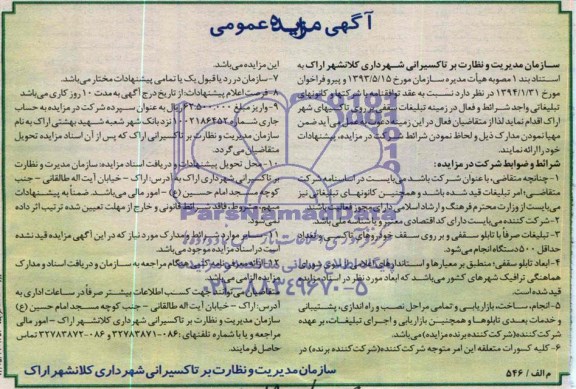 آگهی مزایده عمومی
سازمان مدیریت و نظارت بر تاکسیرانی شهرداری کلانشهر اراک به
استناد بند ۱ مصوبه هیأت مدیره سازمان مورخ ۱۳۹۳/۵/۱۵ و پیرو فراخوان
مورخ ۱۳۹۴/۱/۳۱ در نظر دارد نسبت به عقد توافقنامه با شرکتها و کانونهای
تبلیغاتی واجد شرائط و فعال در زمینه تبلیغات سقفی بر روی تاکسیهای شهر
اراک اقدام نماید لذا از متقاضیان فعال در این زمینه دعوت به عمل می آید ضمن
مهیا نمودن مدارک ذیل و لحاظ نمودن شرائط شرکت در مزایده، پیشنهادات
خود را ارائه نمایند.
شرائط و ضوابط شرکت در مزایده:
۱- چنانچه متقاضی، با عنوان شرکت باشد می‌بایست در اساسنامه شرکت
متقاضی، امر تبلیغات قید شده باشد و همچنین کانونهای تبلیغاتی نیز
می‌بایست از وزارت محترم فرهنگ و ارشاد اسلامی دارای مجوز فعالیت باشند.
۲- شرکت کننده می‌بایست دارای کد اقتصادی معتبر و کد ملی باشد.
۳- تبلیغات صرفاً با تابلو سقفی و بر روی سقف خودروهای تاکسی به تعداد
حداقل ۵۰۰ دستگاه انجام می‌شود.
۴- ابعاد تابلو سقفی؛ منطبق بر معیارها و استانداردهای
هماهنگی ترافیک شهرهای کشور می‌باشد که ابعاد مورد نظر در اسناد مزایده
قید شده است.
۵- انجام، ساخت، بازاریابی و تمامی مراحل نصب و راه اندازی، پشتیبانی
و خدمات بعدی تابلوها و همچنین بازاریابی و اجرای تبلیغات، بر عهده
شرکت کننده (شرکت کننده برنده مزایده) می‌باشد.
۶- کلیه کسورات متعلقه این امر متوجه شرکت کننده (شرکت کننده برنده) در
این مزایده می‌باشد.
۷- سازمان در رد یا قبول یک یا تمامی پیشنهادات مختار می‌باشد.
۸- فرصت اعلام پیشنهادات؛ از تاریخ درج آگهی به مدت ۱۰ روز کاری می‌باشد
۹- واریز مبلغ ریال به عنوان سپرده شرکت در مزایده به حساب
جاری شماره نزد بانک شهر شعبه شهید بهشتی اراک به نام
سازمان مدیریت و نظارت بر تاکسیرانی اراک که پس از آن اسناد مزایده تحویل
متقاضیان می‌گردد.
۱۰- محل تحویل پیشنهادات و دریافت اسناد مزایده: سازمان مدیریت و نظارت
بر تاکسیرانی شهرداری اراک به آدرس: اراک - خیابان آیت اله طالقانی - جنب
کوچه مسجد امام حسین (ع) - امور مالی می‌باشد. ضمناً به پیشنهادات
مبهم، مشروط، فاقد شرائط قانونی و خارج از مهلت تعیین شده ترتیب اثر داده
نمی‌شود.
۱۱- سایر موارد شرائط و مدارک مورد نیاز که در این آگهی مزایده قید نشده
است در اسناد مزایده موجود می‌باشد.
۱۲- ارائه معرفی نامه کتبی هنگام مراجعه به سازمان و دریافت اسناد و مدارک
مزایده الزامی می‌باشد.
متقاضیان می‌توانند جهت کسب اطلاعات بیشتر صرفاً در ساعات اداری به
آدرس: اراک - خیابان آیت اله طالقانی - جنب کوچه مسجد امام حسین (ع)
سازمان مدیریت و نظارت بر تاکسیرانی شهرداری کلانشهر اراک - امور مالی
مراجعه و یا با شماره تلفنهای: ۰۸۶-۳۲۷۸۳۸۷۱ و ۰۸۶-۳۲۷۸۳۸۷۲ تماس
حاصل فرمایند.
سازمان مدیریت و نظارت بر تاکسیرانی شهرداری کلانشهر اراک
م الف / ۵۴۶
ParsNamadData
۰۲۱-۸۸۳۴۹۶۷۰-۵